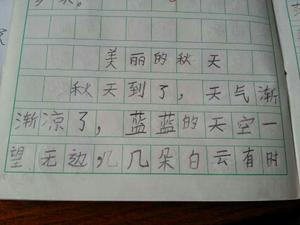 美丽的秋天
秋天到了，天气渐
渐凉了，蓝蓝的天空一
望无边，几几朵白云有时